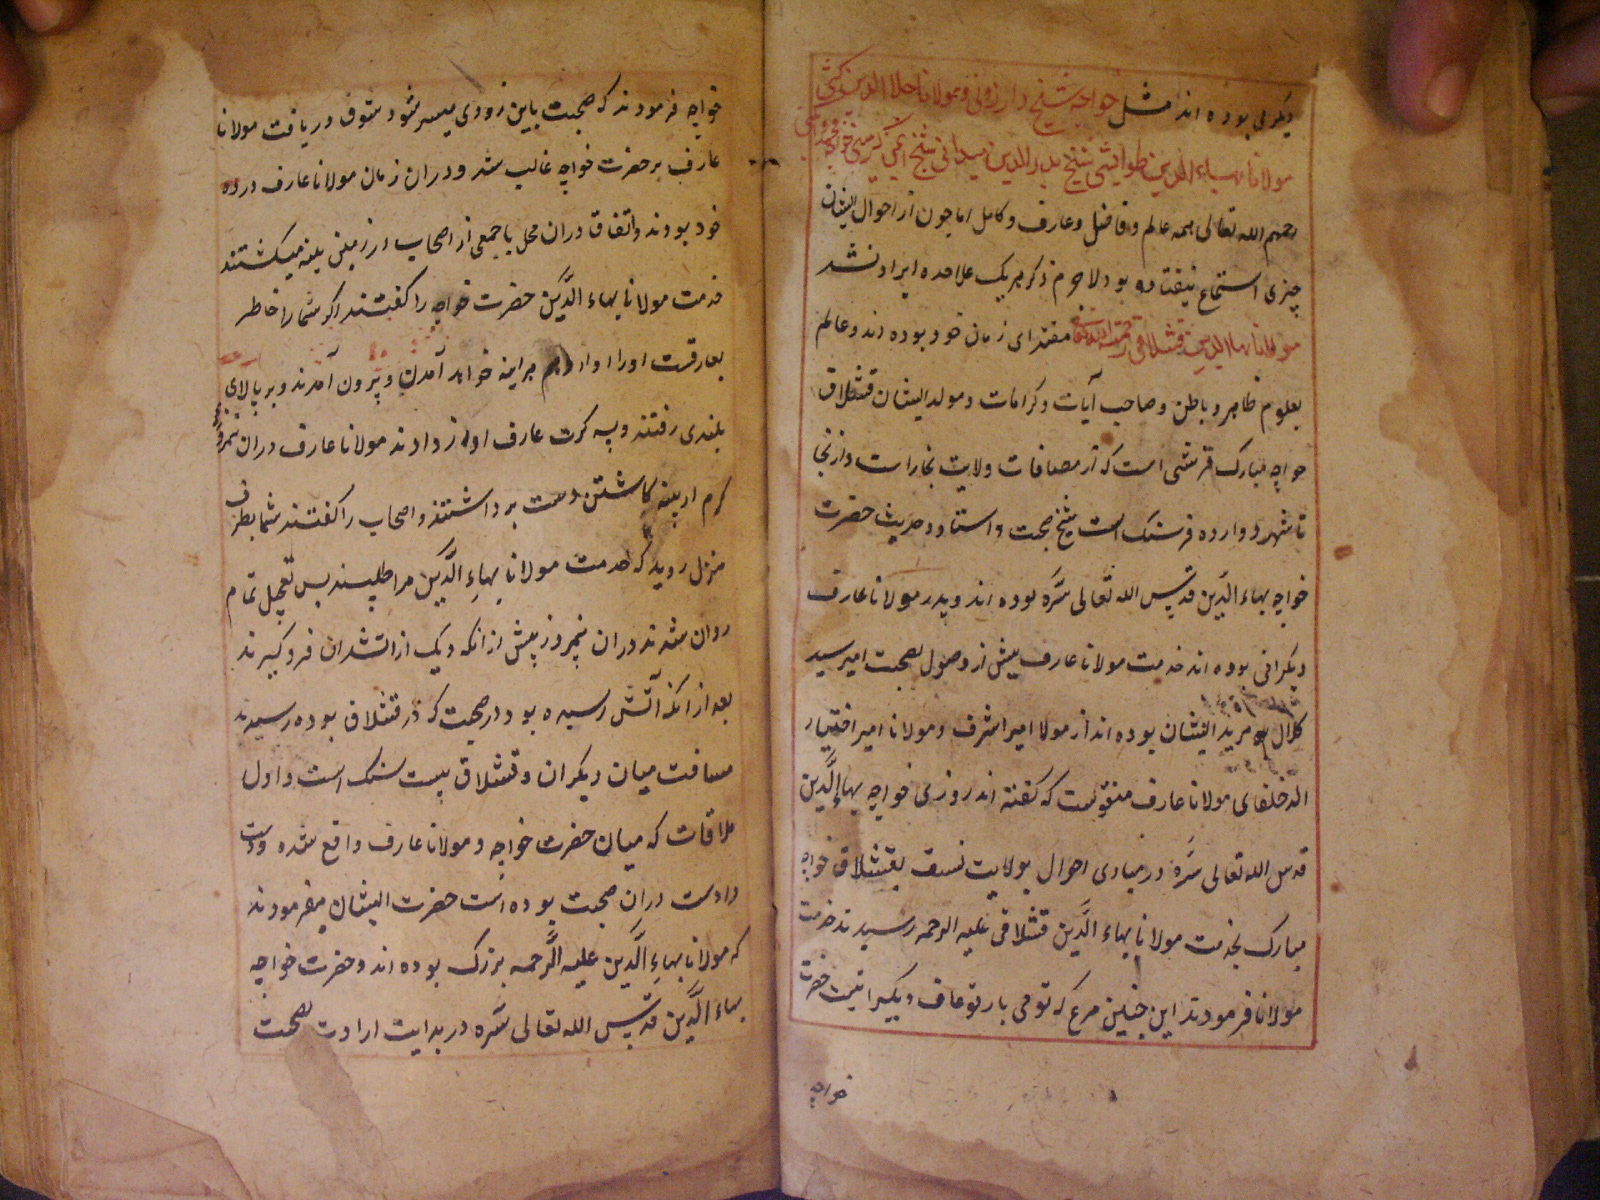 دیگر نیز بوده اند مثل خواجه شیخ دارزونی و مولانا جلال الدین کشی
مولانا بهاء الدین طوایشی شیخ بدر الدین میدانی شیخ
رحمهم الله تعالی همه عالم و فاضل و عارف و کامل اما چون از احوال ایشان
چیزی استماع نیفتاده بود لاجرم ذکر هر یک علاحده ایراد نشد
مولانا بهاء الدین قشلاقی رحمة الله مقتدای زمان خود بوده اند و عالم
بعلوم ظاهر و باطن و صاحب آیات و کرامات و مولد ایشان قشلاق
خواجه مبارک قرشی است که از مضافات ولایت بخارا ست و از آنجا
تا شهر دوازده فرسنک است شیخ صحبت و استاد حدیث حضرت
خواجه بهاء الدین قدس الله تعالی سره بوده اند و پدر مولانا عارف
دیکرانی بوده اند خدمت مولانا عارف پیش از وصول بصحبت امیر سید
کلال مرید ایشان بوده اند از مولانا امیر اشرف و مولانا امیر اختیار
الد خلفای مولانا عارف منقولست که گفته اند روزی خواجه بهاء الدین
قدس الله تعالی سره در مبادی احوال بولایت نسف بقشلاق خواجه
مبارک بخدمت مولانا بهاء الدین قشلاقی علیه الرحمه رسیدند خدمت
مولانا فرمودند این چنین مرغ که تویی یار تو عارف دیکرانیست حضرت
خواجه
خواجه فرمودند که صحبت باین زودی میسر شود شوق دریافت مولانا
عارف بر حضرت خواجه غالب شد و در ان زمان مولانا عارف در ده
خود بودند و اتفاق در ان محل با جمعی از اصحاب در زمین پنبه میکشتند
خدمت مولانا بهاء الدین حضرت خواجه را کفتند اکر شما را خاطر
بعارفست او را هر اینه خواهد آمدن و بیرون آمدند و بر بالای
بلندی رفتند و سه کرت عارف آواز دادند مولانا عارف در ان نیمروز
کرم از پنبه کاشتن دست برداشتند و اصحاب را کفتند شما بطرف
منزل روید که خدمت مولانا بهاء الدین مرا طلبیدند پس بتعجیل تمام
روان شدند در ان نیمروز پیش از انکه دیک از اتشدان فرو کیرند
بعد از انکه آتش رسیده بود در صحبت که در قشلاق بوده رسیدند
مسافت میان دیکران و قشلاق بیست سنک است و اول
ملاقات که میان حضرت خواجه و مولانا عارف واقع شده و دست
دادست در ان صحبت بوده است حضرت ایشان میفرمودند
که مولانا بهاء الدین علیه الرحمه بزرک بوده اند و حضرت خواجه
بهاء الدین قدس الله تعالی سره در بدایت ارادت بصحبت